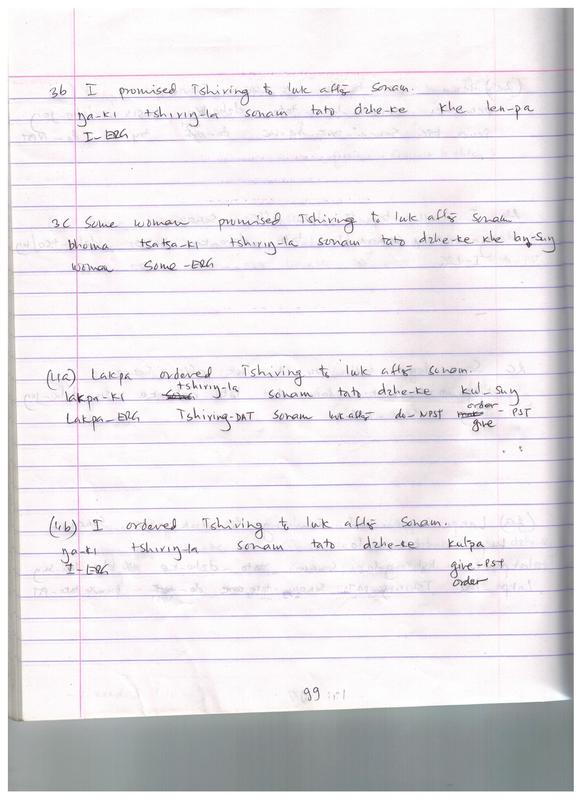 3b I promised Tshiring to look after Sonam.
ŋa-ki tshiriŋ-la sonam tato dzhe-ke khe len-pa
I-ERG
3c Some woman promised Tshiring to look after Sonam
bhoma tsatsa-ki tshiriŋ-la sonam tato dzhe-ke khe
woman some-ERG
(4a) Lakpa ordered Tshiring to look after Sonam.
lakpa-ki tshiriŋ-la sonam tato dzhe-ke kul-suŋ
Lakpa-ERG Tshiring-DAT Sonam look after do-NPST order-PST
give
(4b) I ordered Tshiring to look after Sonam.
ŋa-ki tshiriŋ-la sonam tato dzhe-ke kulpa
I-ERG give-PST
order
99